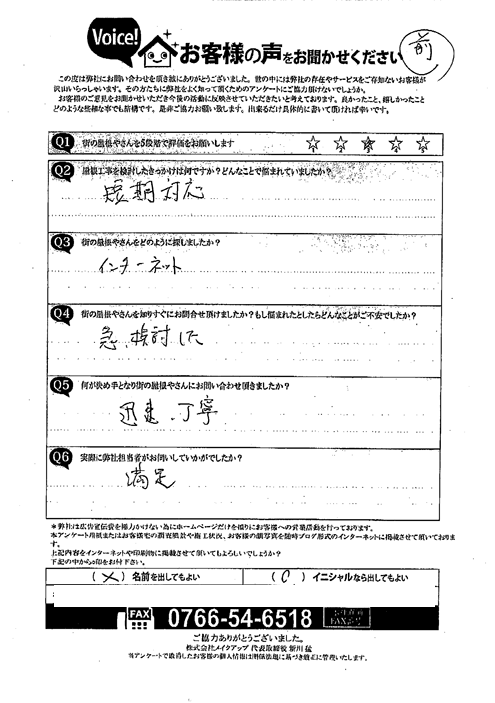 Voice!
お客様の声をお聞かせください
前
この度は弊社にお問い合わせを頂き誠にありがとうございました。世の中には弊社の存在やサービスをご存知ないお客様が
沢山いらっしゃいます。その方たちに弊社をよく知って頂くためのアンケートにご協力頂けないでしょうか。
お客様のご意見をお聞かせいただき今後の活動に反映させていただきたいと考えております。良かったこと、嬉しかったこと
どのような些細な事でも結構です。是非ご協力お願い致します。出来るだけ具体的に書いて頂ければ幸いです。
Q1 街の屋根やさんを5段階で評価をお願いします ☆ ☆ ☆ ☆ ☆
Q2 屋根工事を検討したきっかけは何ですか?どんなことで悩まれていましたか?
短期対応
Q3 街の屋根やさんをどのように探しましたか?
インターネット
Q4 街の屋根やさんを知りすぐにお問合せ頂けましたか?もし悩まれたとしたらどんなことがご不安でしたか?
急、検討した
Q5 何が決め手となり街の屋根やさんにお問い合わせ頂きましたか?
迅速、丁寧
Q6 実際に弊社担当者がお伺いしていかがでしたか?
満足
*弊社は広告宣伝費を極力かけない為にホームページだけを頼りにお客様への営業活動を行っております。
本アンケート用紙またはお客様宅の調査風景や施工状況、お客様の顔写真を随時ブログ形式のインターネットに掲載させて頂いておりま
す。
上記内容をインターネットや印刷物に掲載させて頂いてもよろしいでしょうか?
下記の中から○印をお付下さい。
(×)名前を出してもよい (○)イニシャルなら出してもよい
FAX 0766-54-6518
ご協力ありがとうございました。
株式会社メイクアップ 代表取締役 新川 猛
当アンケートで取得したお客様の個人情報は関係法規に基づき適正に管理いたします。